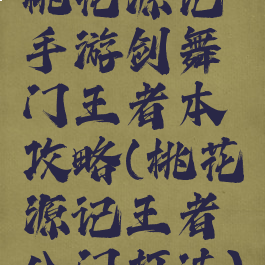 桃花源记
手游剑舞
门王者本
攻略(桃花
源记王者